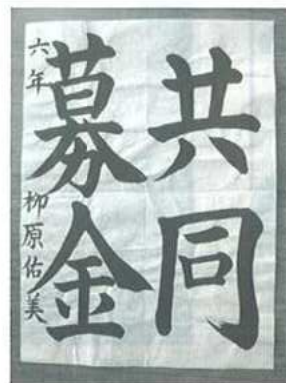 共同
募金
六年 柳原佑美